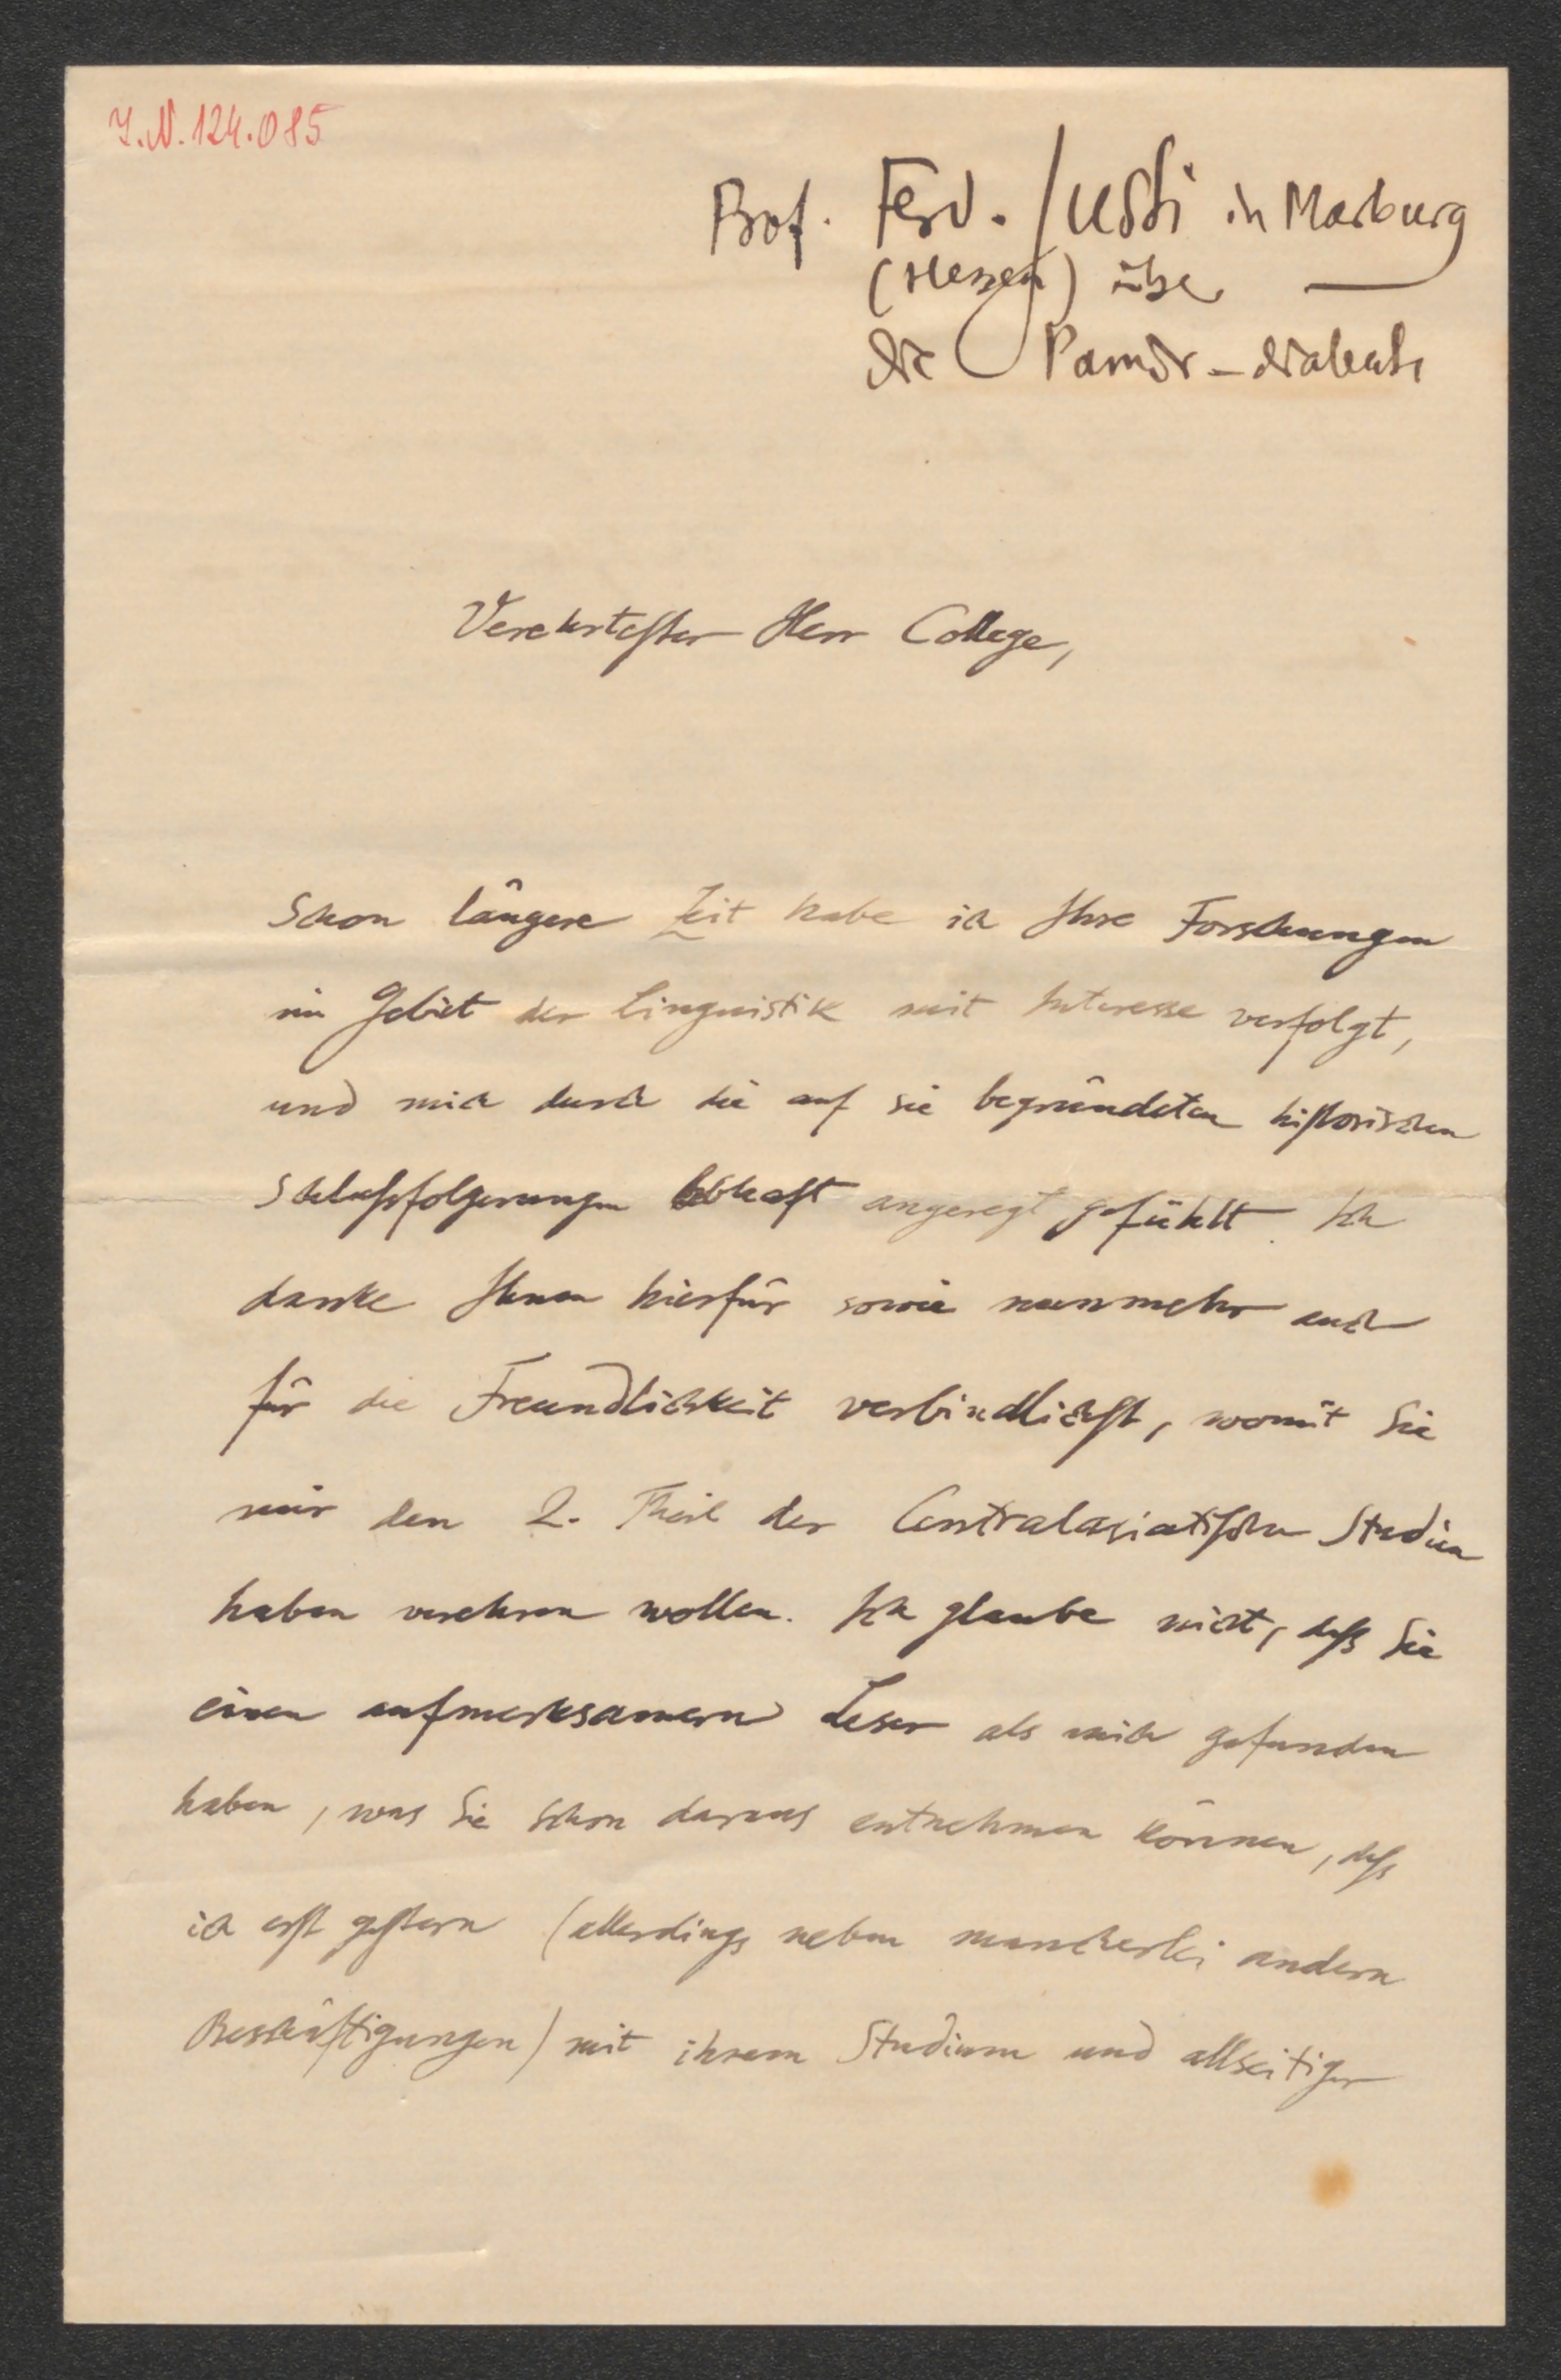 I.N. 124.085
Prof. Ferd. Justi in Marburg
(Hessen) über
die Pamir-dialecte
Verehrtester Herr College,
Schon längere Zeit habe ich Ihre Forschungen
im Gebiet der Linguistik mit Interesse verfolgt,
und mich durch die auf sie begründeten historischen
Schlußfolgerungen lebhaft angeregt gefühlt. Ich
danke Ihnen hierfür sowie nunmehr auch
für die Freundlichkeit verbindlichst, womit Sie
mir den 2. Theil der Centralasiatischen Studien
haben verehren wollen. Ich glaube nicht, daß Sie
einen aufmerksamern Leser als mich gefunden
haben, was Sie schon daraus entnehmen können, daß
ich erst gestern (allerdings neben mancherlei andern
Beschäftigungen) mit ihrem Studium und allseitiger